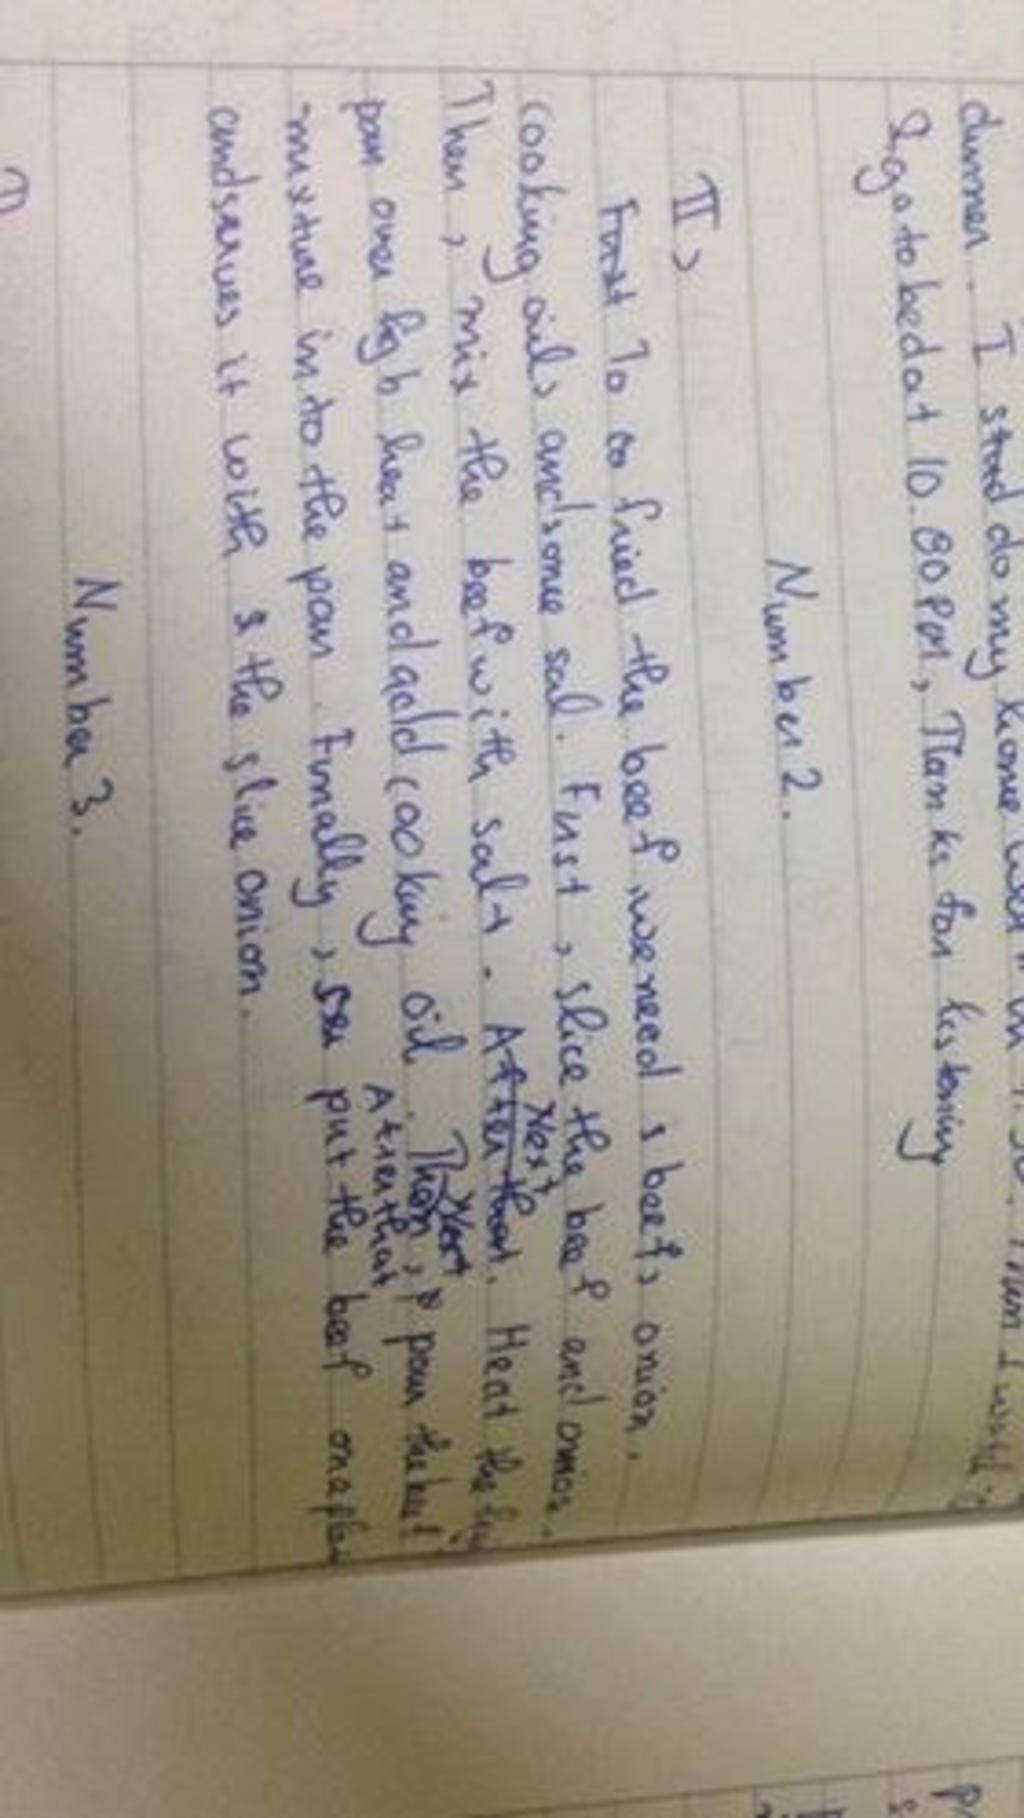 dinner. I do my home
I go to bed at 10.00 PM, Thanks for listening
Number 2.
II,
To fried the beef, we need s beef, onion,
cooking oil, and some sal. First, slice the beef and onion.
Then, mix the beef with salt. After that. Next Heat the
pan over high heat and add cooking oil. Then, Next After that pour the beef
mixture into the pan. Finally, put the beef one
and serves it with the slice onion.
Number 3.